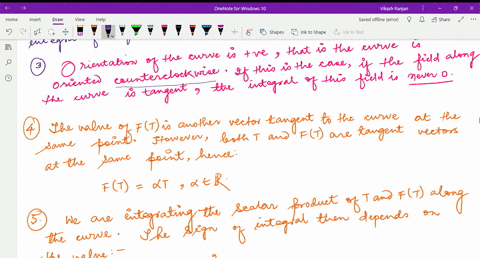 OneNote for Windows 10
Vikash Ranjan
File Home Insert Draw View Help
Saved offline (error)
Shapes Ink to Shape Ink to Text
③ Orientation of the curve is +ve, that is the curve is
oriented counterclockwise. If this is the case, if the field along
the curve is tangent, the integral of this field is never 0.
④ The value of F(T) is another vector tangent to the curve at the
same point. However, both T and F(T) are tangent vectors
at the same point, hence:
F(T) = αT, α ∈ R.
⑤ We are integrating the scalar product of T and F(T) along
the curve. The sign of integral then depends on
the value:-